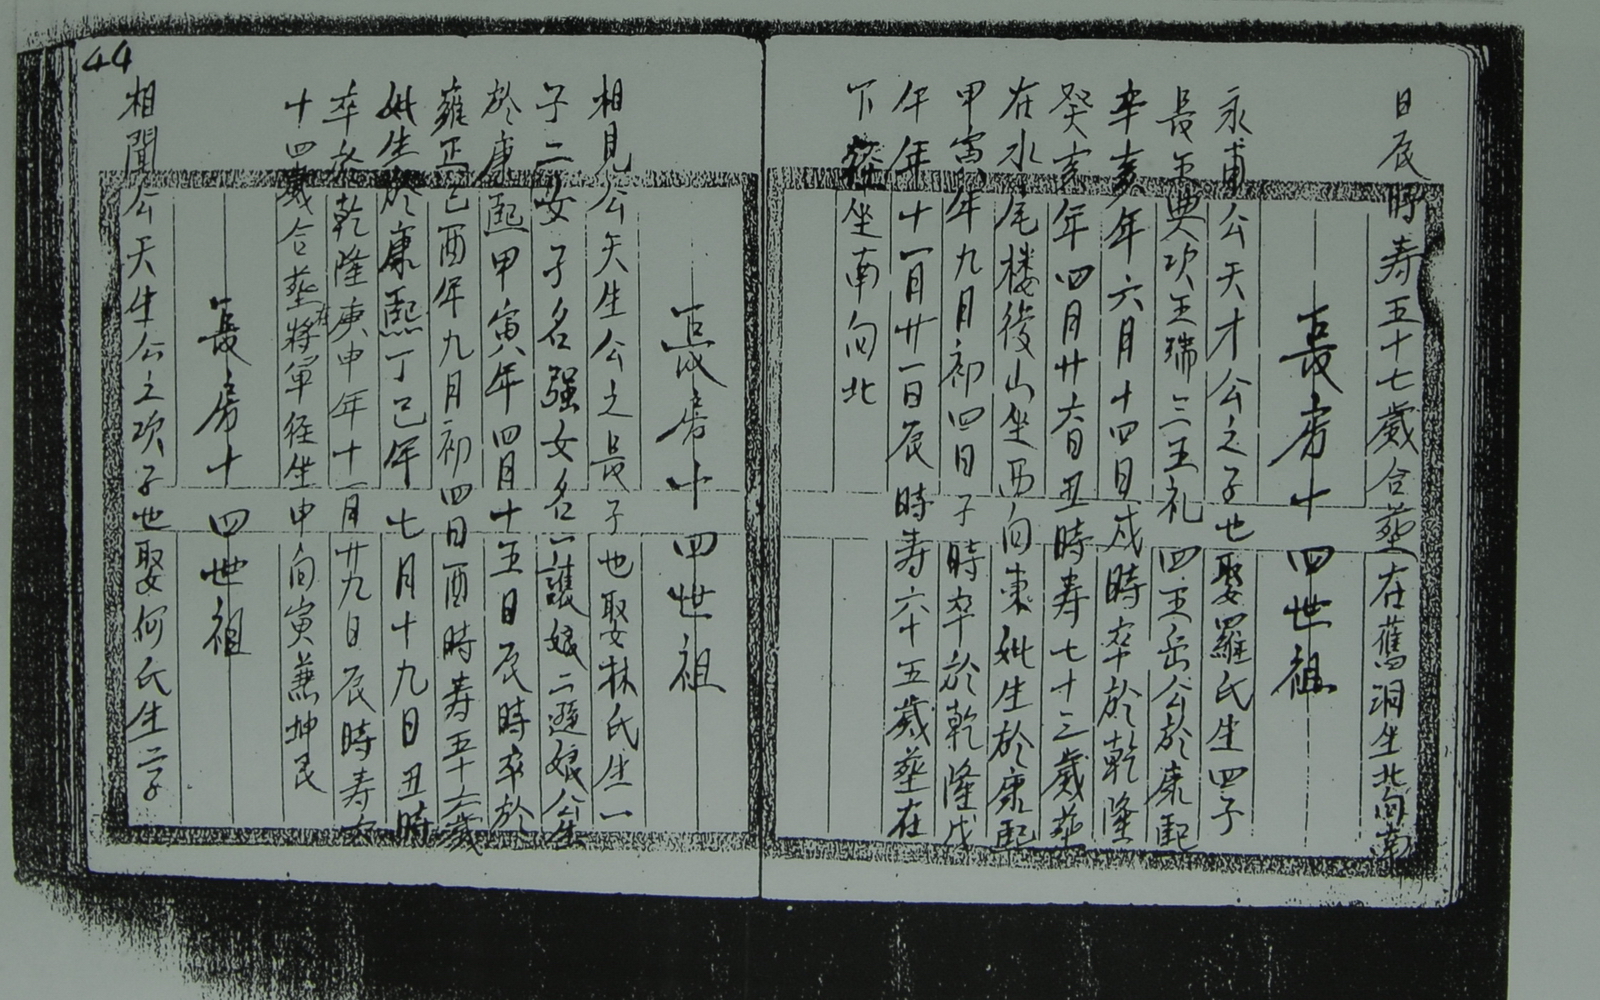 44
日辰時寿五十七歲合塟在舊洞坐北向南
長房十四世祖
永甫公天才公之子也娶羅氏生四子
長玉典次玉瑞三玉礼四玉岳公於康熙
辛亥年六月十四日戌時卒於乾隆
癸亥年四月廿六日丑時寿七十三歲塟
在水尾楼後山坐西向東妣生於康熙
甲寅年九月初四日子時卒於乾隆戊
午年十一月廿一日辰時寿六十五歲塟在
下 坐南向北
長房十四世祖
相見公天生公之長子也娶林氏生一
子二女子名强女名一讓娘二遊娘公生
於康熙甲寅年四月十五日辰時卒於
雍正己酉年九月初四日酉時寿五十六歲
妣生於康熙丁巳年七月十九日丑時
卒於乾隆庚申年十一月廿九日辰時寿六
十四歲合塟在将軍径坐申向寅兼坤艮
長房十四世祖
相聞公天生公之次子也娶何氏生二子